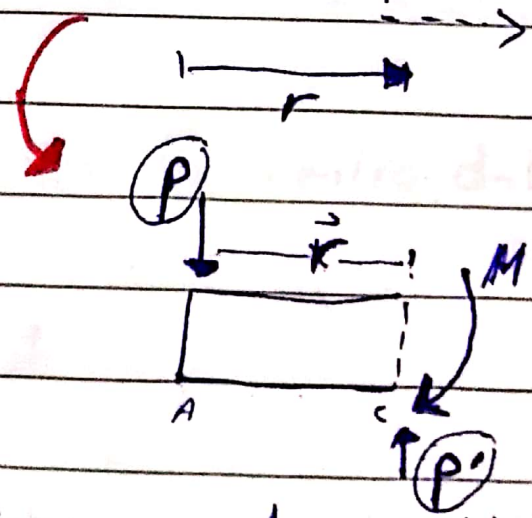 r
P
r
M
A C
P'